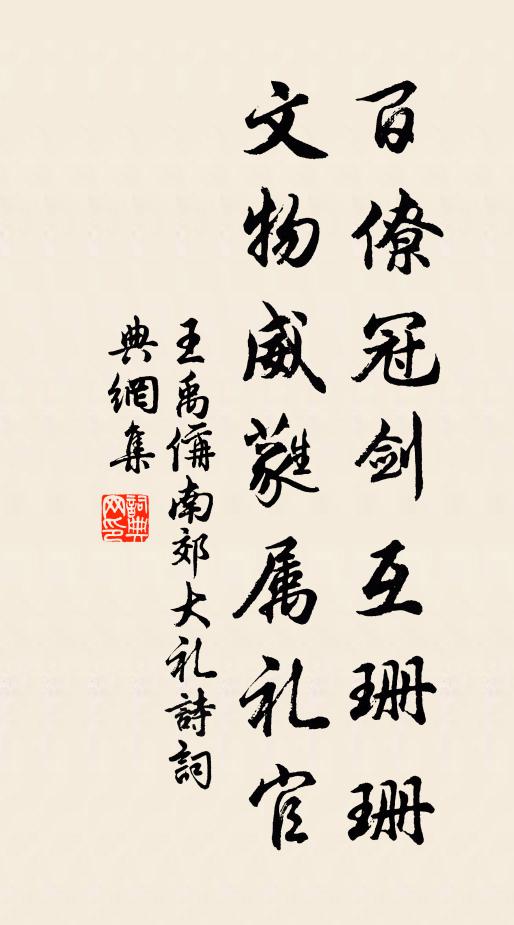 百僚冠剑互珊珊
文物威蕤属礼官
王禹偁南郊大礼詩詞
典網集
詞典网印